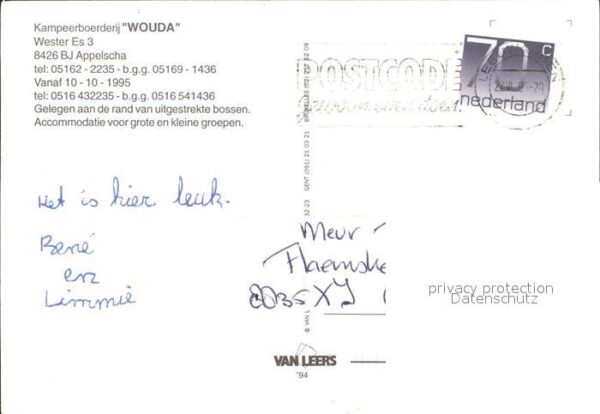 Kampeerboerderij "WOUDA"
Wester Es 3
8426 BJ Appelscha
tel: 05162 - 2235 - b.g.g. 05169 - 1436
Vanaf 10 - 10 - 1995
tel: 0516 432235 - b.g.g. 0516 541436
Gelegen aan de rand van uitgestrekte bossen.
Accommodatie voor grote en kleine groepen.
70 c
nederland
POSTCODE
Het is hier leuk.
René
en
Limmie
Meur
8035XJ
privacy protection
Datenschutz
GENT (091) 21 03 21
© VAN L
VAN LEER'S
'94